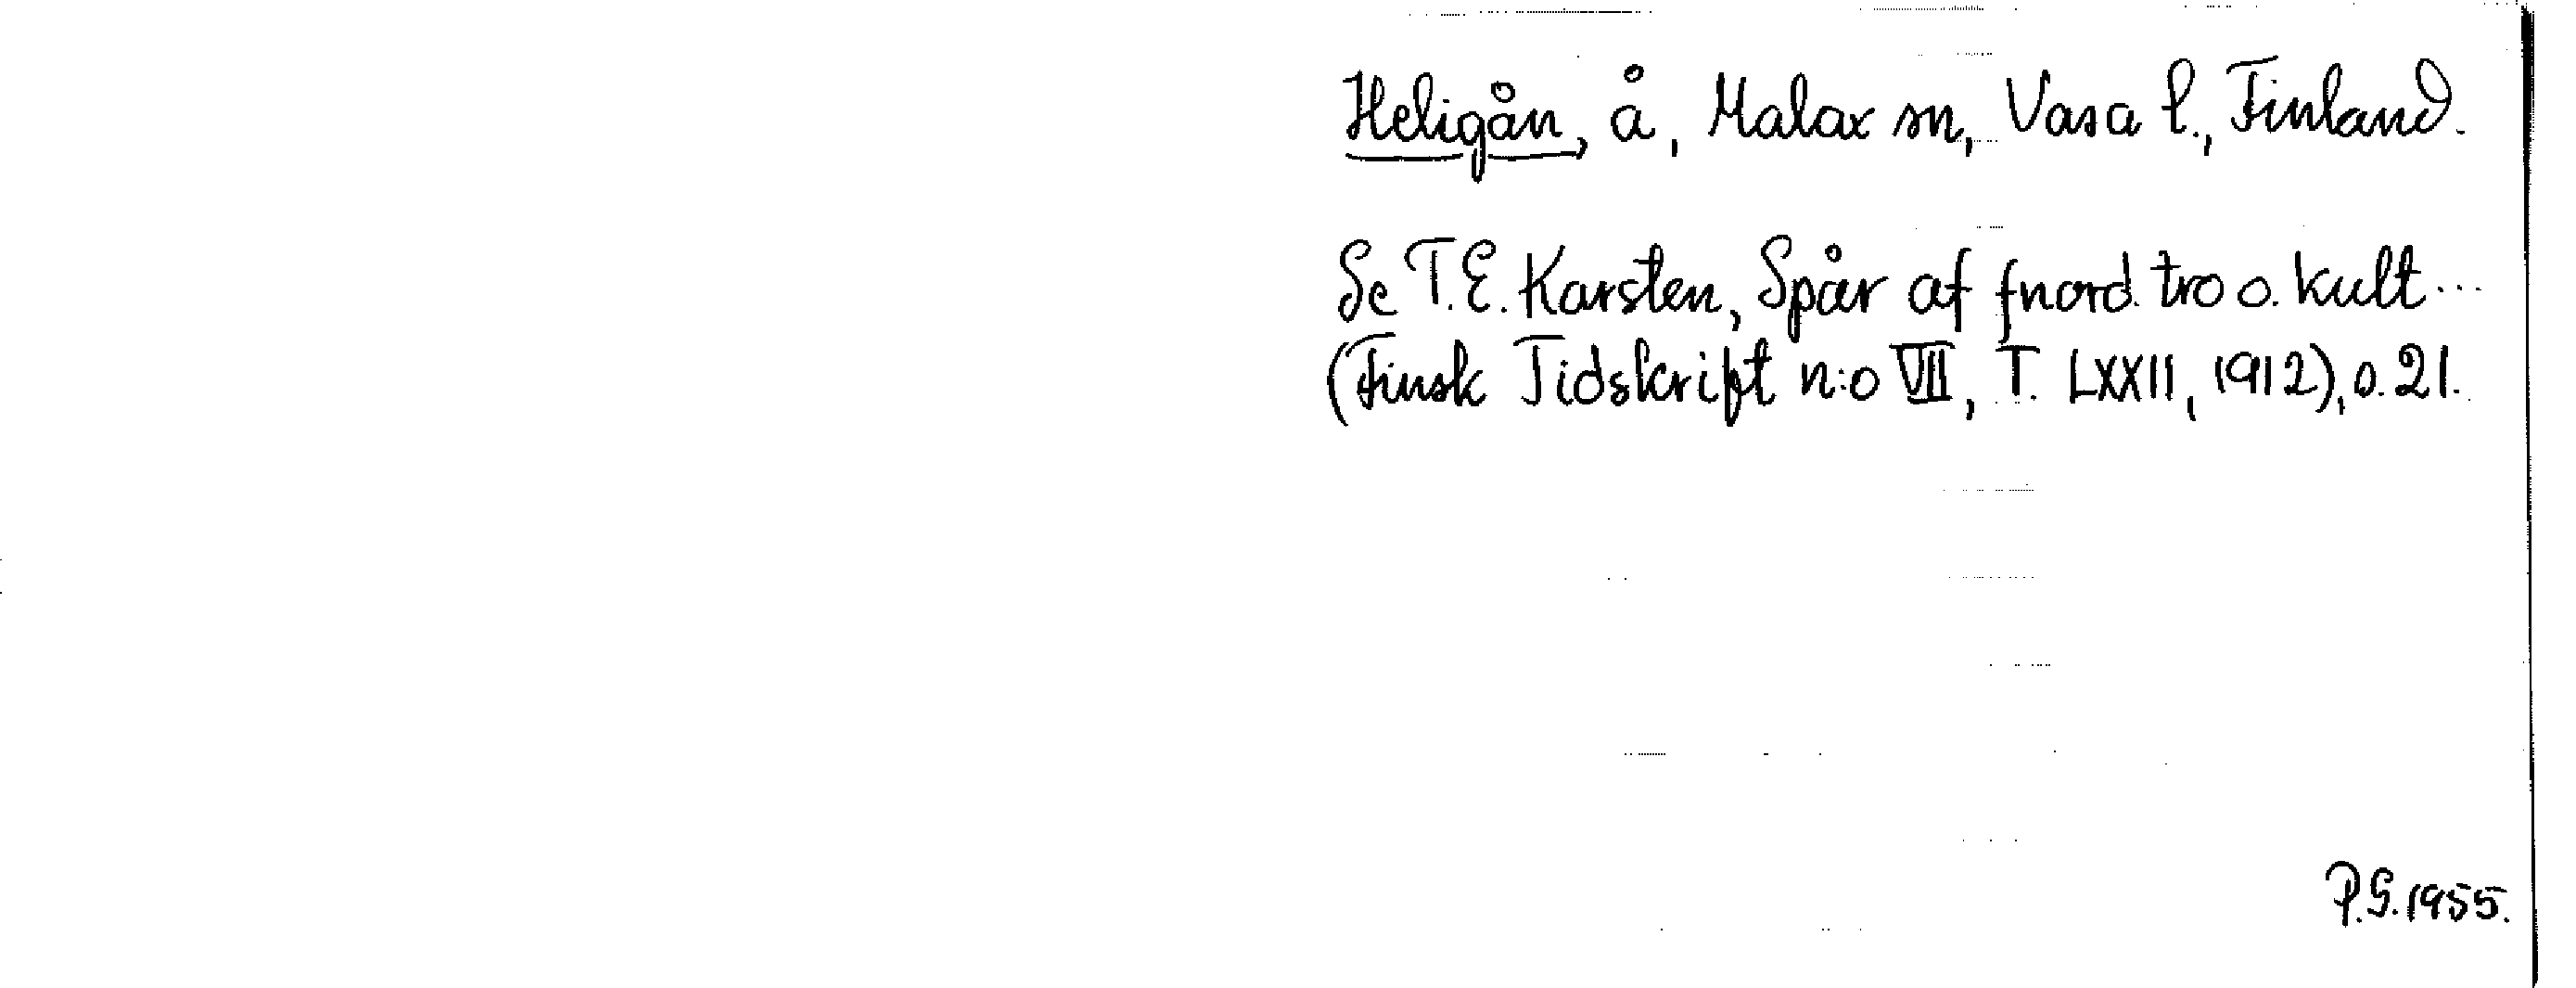 Heligån, å, Malax sn, Vasa l., Finland.
Se T.E. Karsten, Spår af fnord. tro o. kult...
(Finsk Tidskrift n:o VII, T. LXXII, 1912), s. 21.
P.G. 1955.